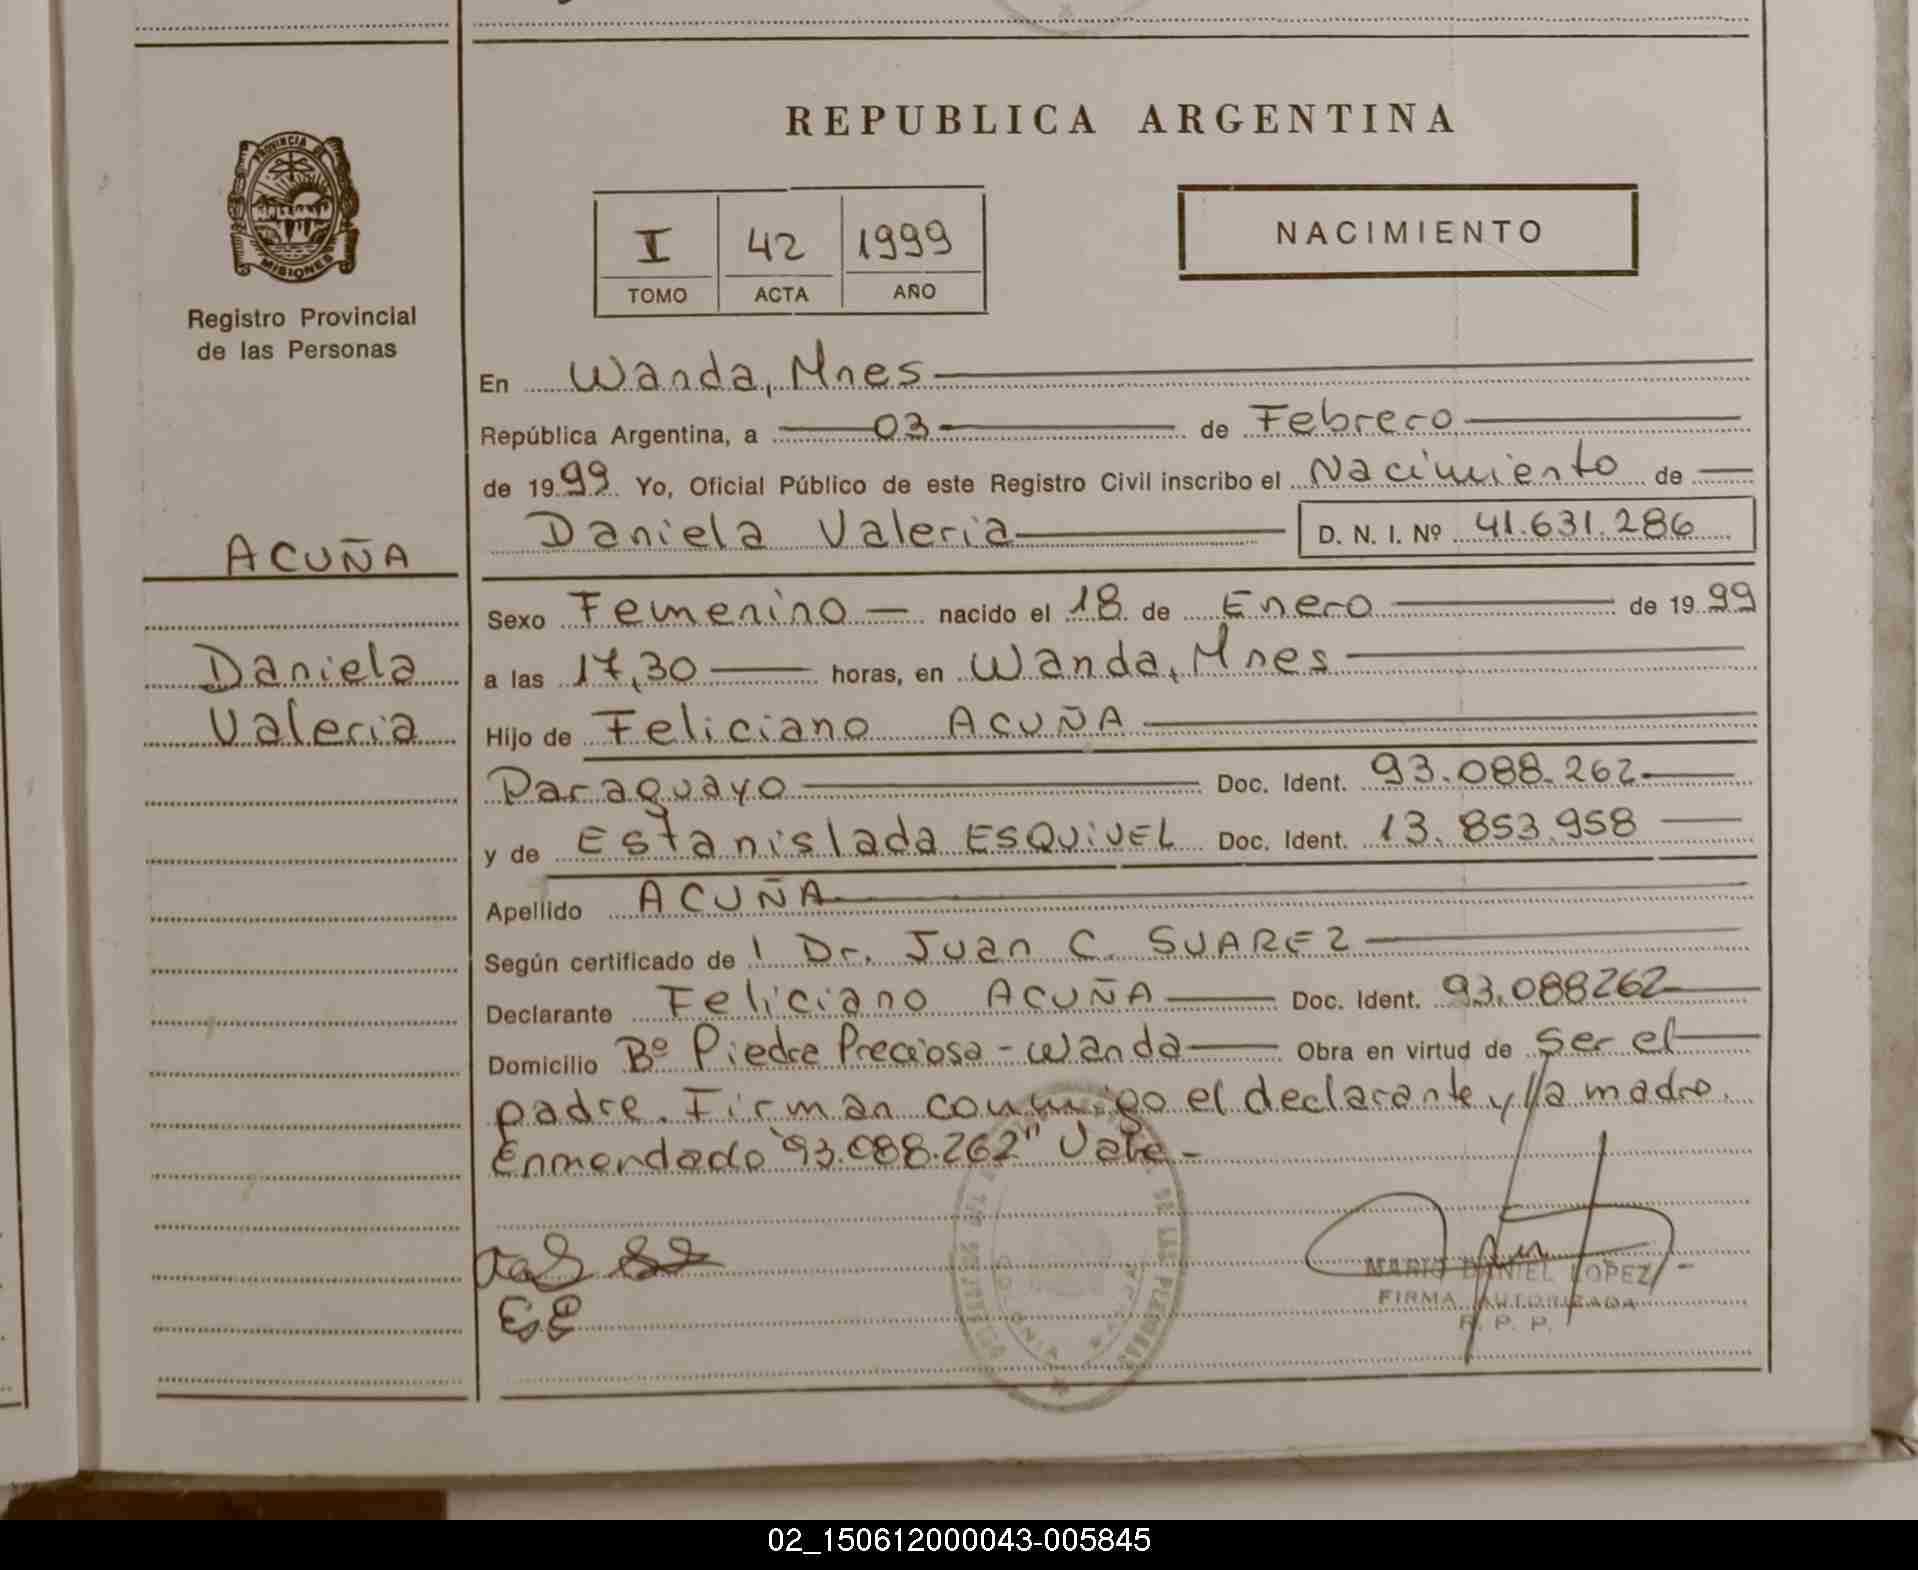 REPUBLICA ARGENTINA
PROVINCIA DE
MISIONES
Registro Provincial
de las Personas
I 42 1999
TOMO ACTA AÑO
NACIMIENTO
En Wanda, Mnes
República Argentina, a 03 de Febrero
de 1999 Yo, Oficial Público de este Registro Civil inscribo el Nacimiento de
Daniela Valeria D. N. I. Nº 41.631.286
ACUÑA
Daniela
Valeria
Sexo Femenino nacido el 18 de Enero de 1999
a las 17,30 horas, en Wanda, Mnes
Hijo de Feliciano ACUÑA
Paraguayo Doc. Ident. 93.088.262
y de Estanislada ESQUIVEL Doc. Ident. 13.853.958
Apellido ACUÑA
Según certificado de l Dr. Juan C. SUAREZ
Declarante Feliciano ACUÑA Doc. Ident. 93.088262
Domicilio Bº Piedra Preciosa - Wanda Obra en virtud de ser el
padre. Firman conmigo el declarante y la madre.
Enmendado "93.088.262" Vale -
DE LAS PERSONAS
COLONIA WANDA
MARIO DANIEL LOPEZ
FIRMA AUTORIZADA
R. P. P.
02_150612000043-005845